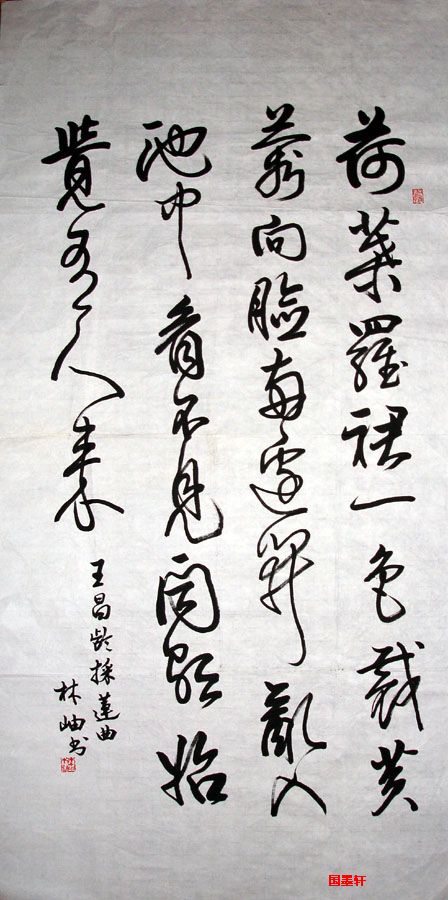 荷葉羅裙一色裁芙
蓉向臉兩邊開亂入
池中看不見聞歌始
覺有人來
王昌齡採蓮曲
林岫书
国墨轩